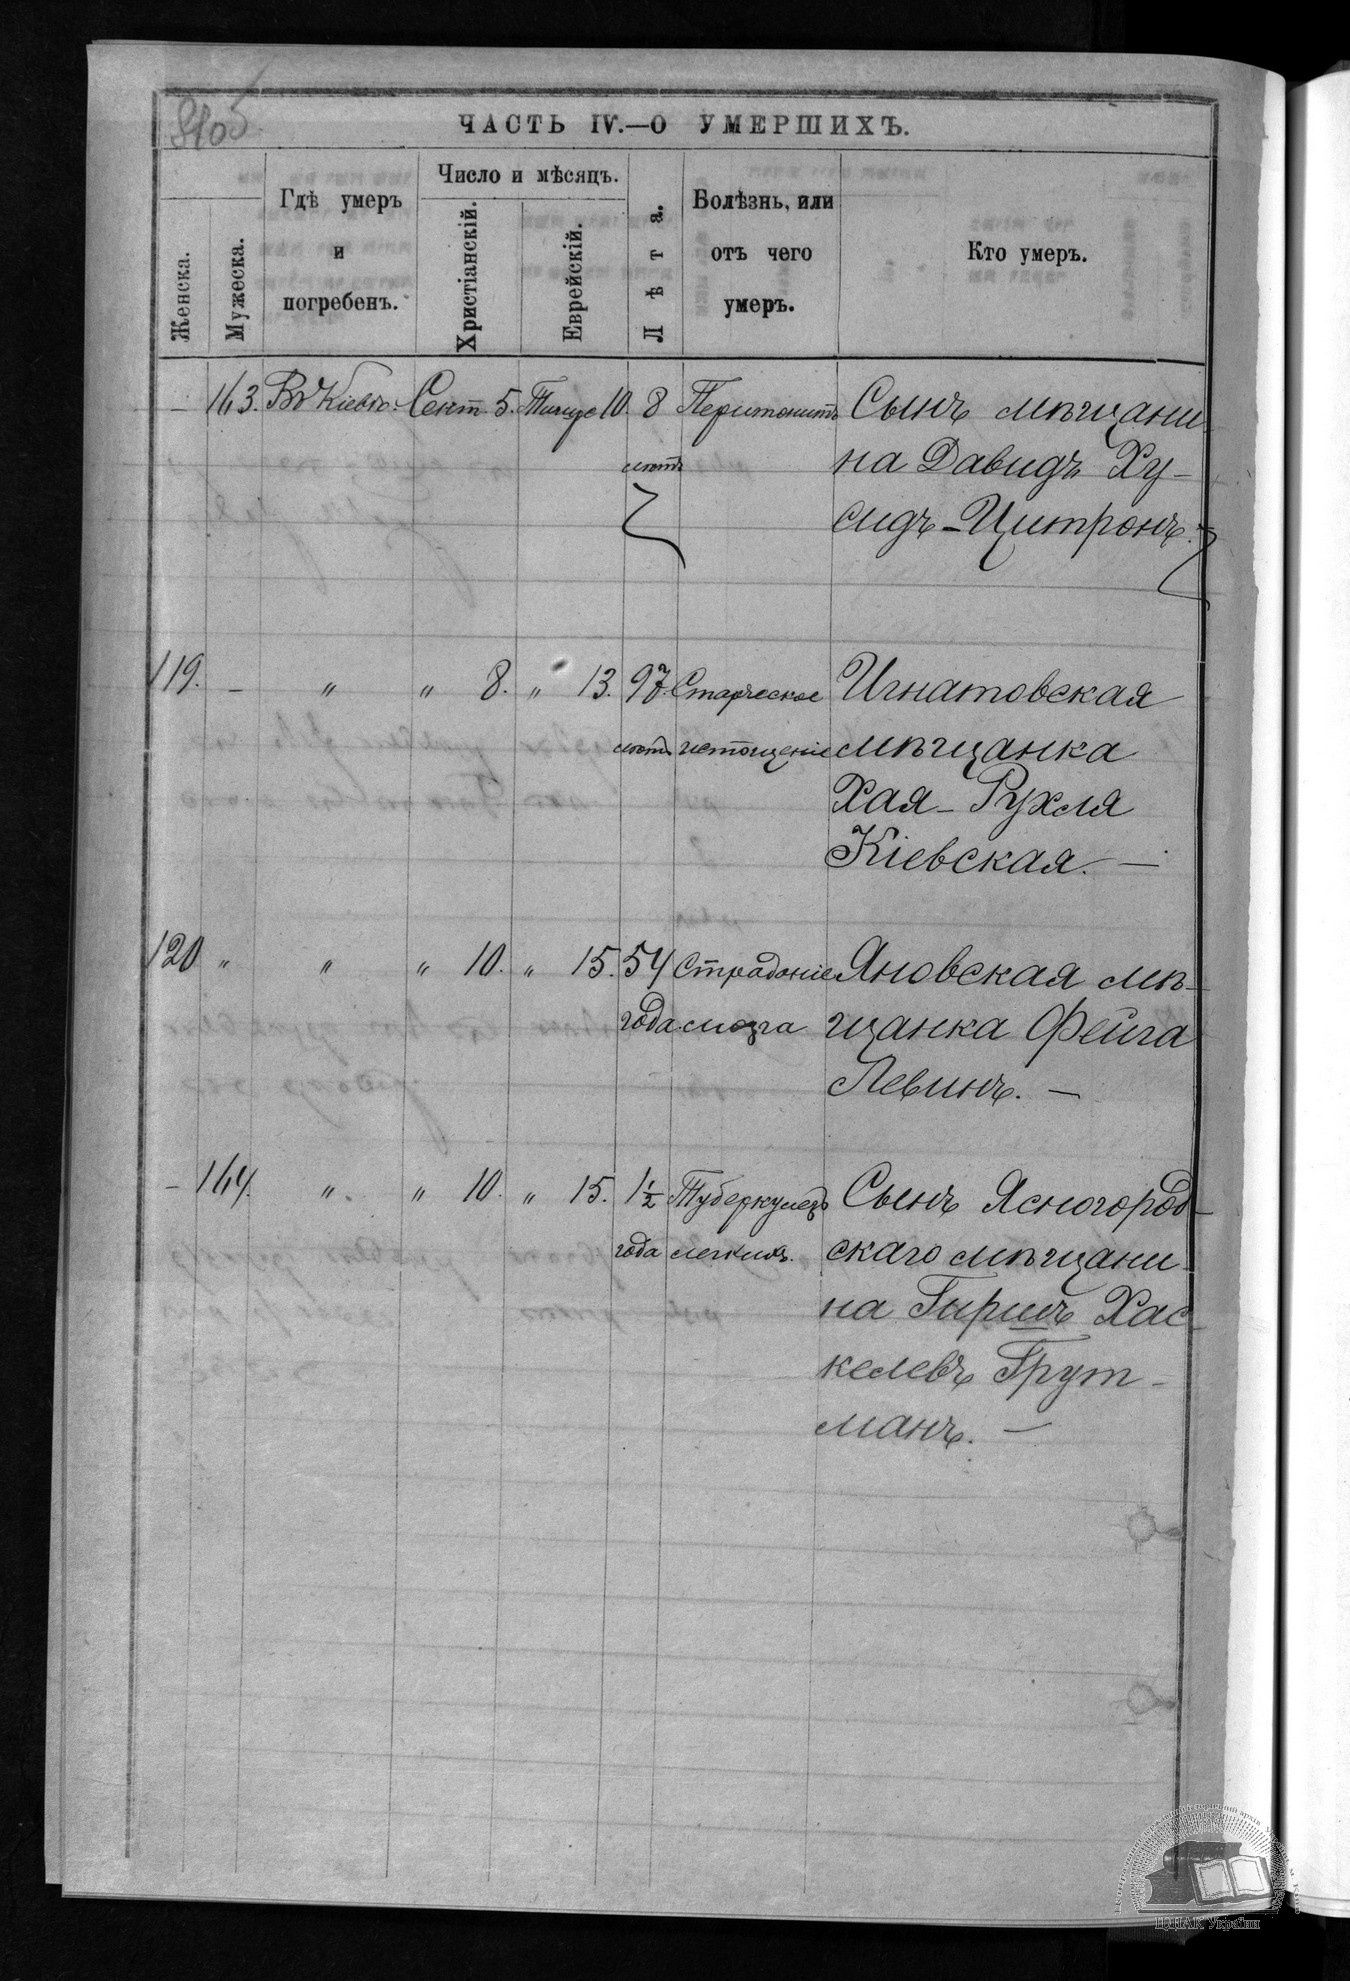 ЧАСТЬ IV.—О УМЕРШИХЪ.
Женска.
Мужеска.
Гдѣ умеръ
и
погребенъ.
Число и мѣсяцъ.
Христіанскій.
Еврейскій.
Лѣта.
Болѣзнь, или
отъ чего
умеръ.
Кто умеръ.
— 163. Въ Кіевѣ. Сент. 5. Тишре 10. 8 Перитонитъ Сынъ мѣщани-
лѣтъ на Давидъ Ху-
сидъ-Цитронъ.
119. — „ „ 8. „ 13. 97. Старческое Игнатовская
лѣтъ истощеніе мѣщанка
Хая-Рухля
Кіевская. —
120 „ „ „ 10. „ 15. 54 Страданіе Яновская мѣ-
года мозга щанка Фейга
Левинъ. —
— 164. „ „ 10. „ 15. 1½ Туберкулезъ Сынъ Ясногород-
года легкихъ. скаго мѣщани-
на Гиршъ Хас-
келевъ Грут-
манъ. —
ЦДІАК України